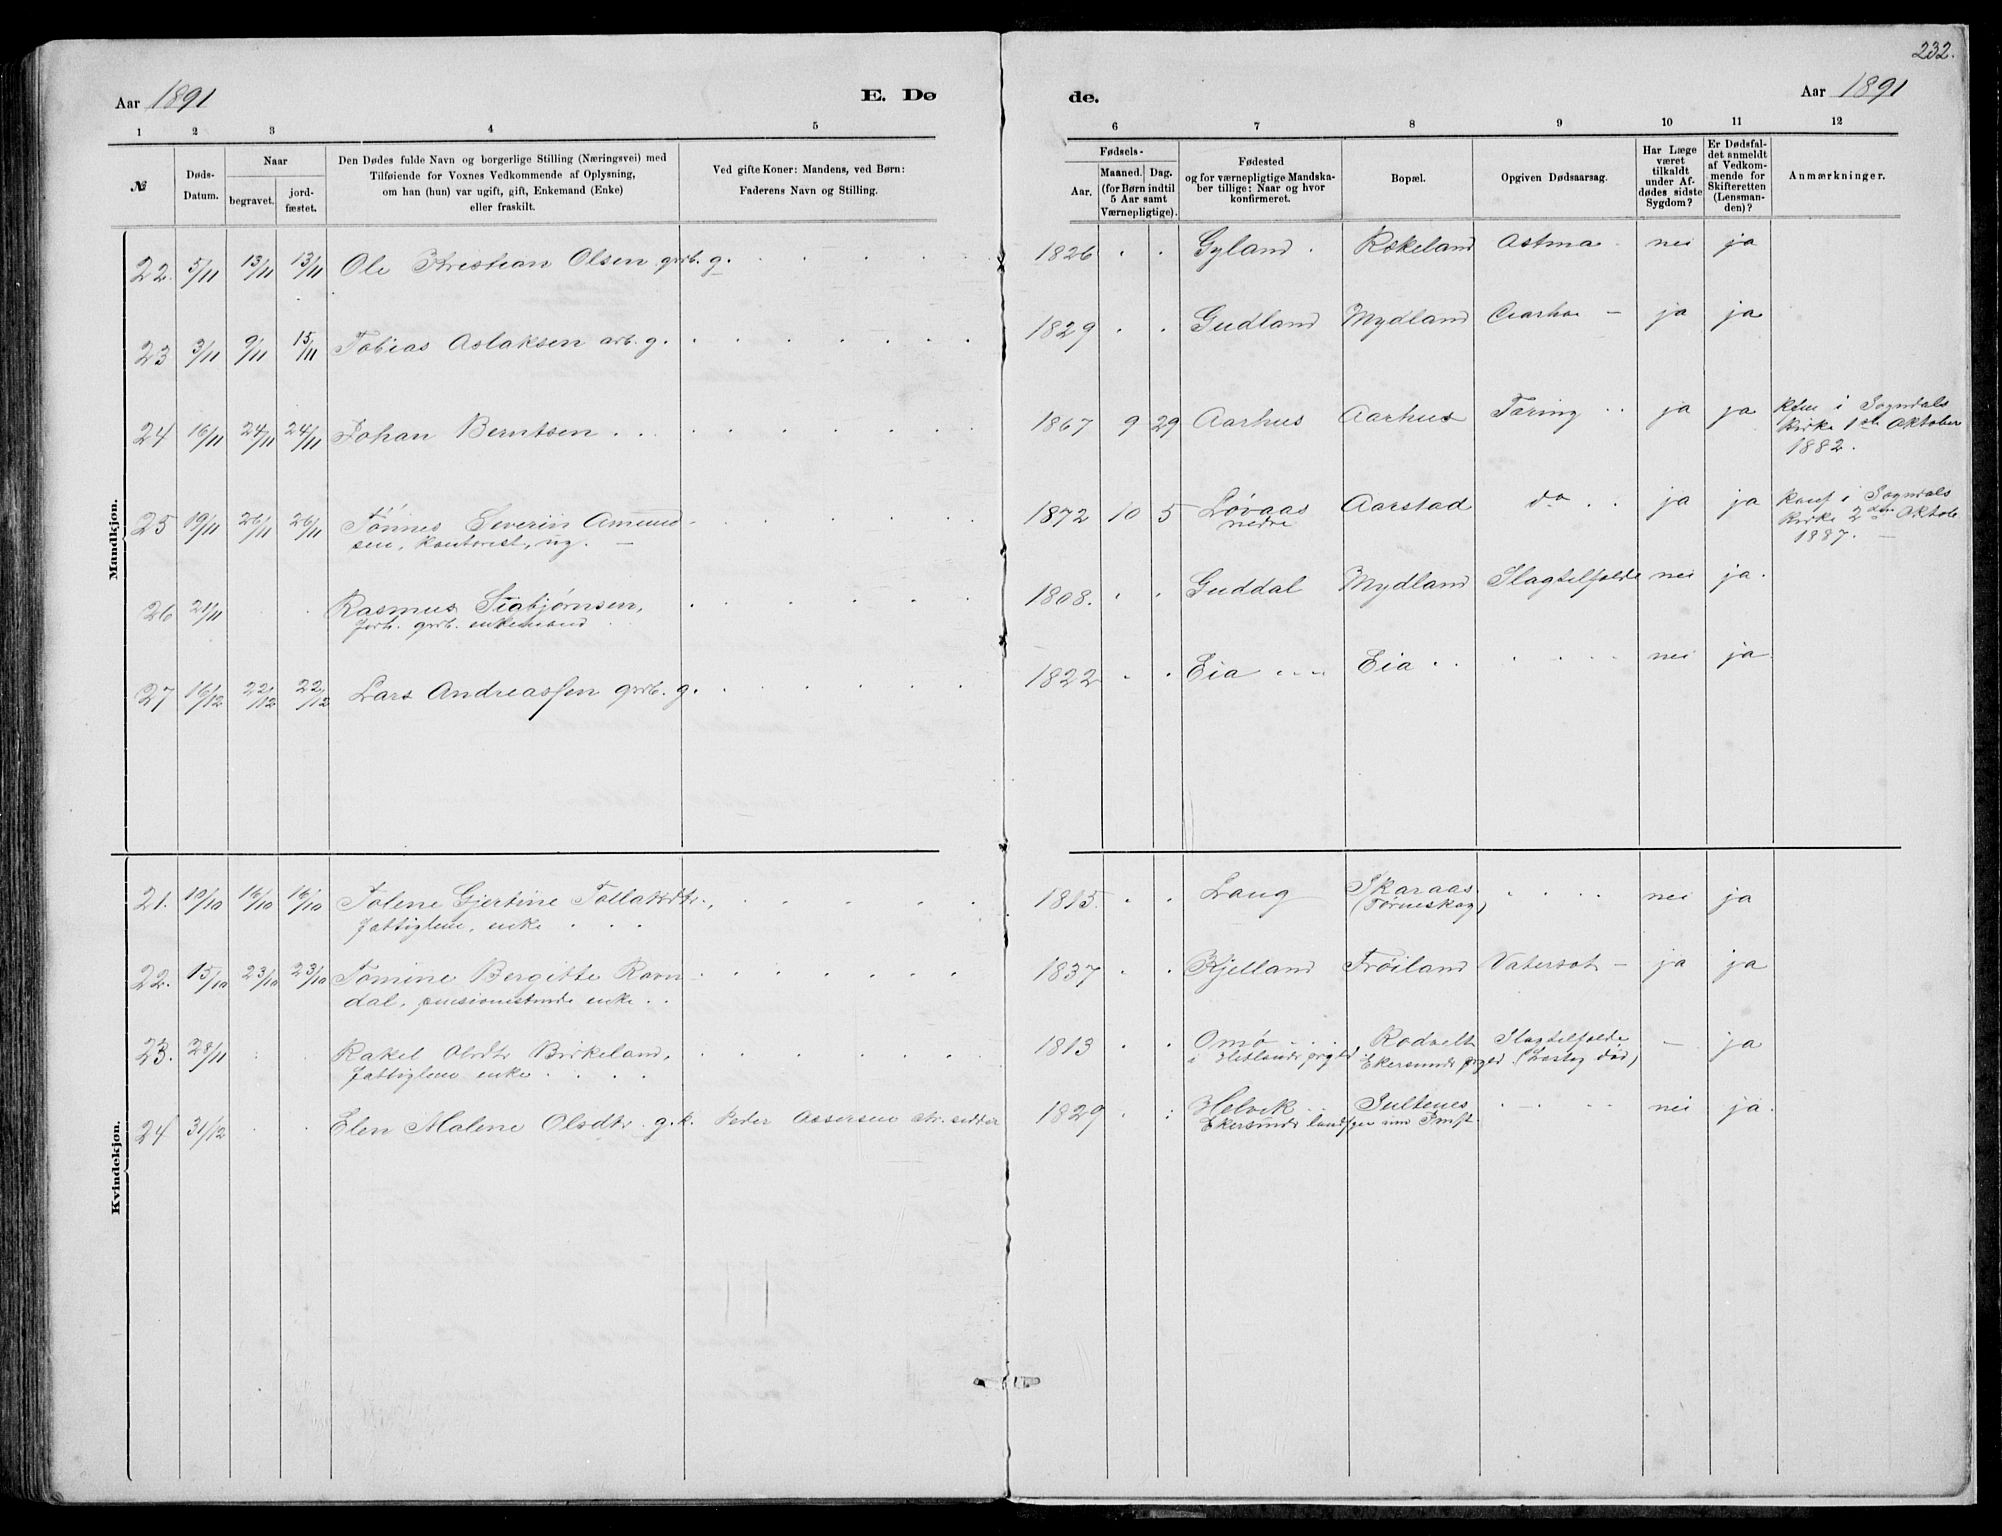 232.
Aar 1891
E. Dø
de.
Aar 1891
1 2 3 4 5 6 7 8 9 10 11 12
№
Døds-
Datum.
Naar
begravet.
jord-
fæstet.
Den Dødes fulde Navn og borgerlige Stilling (Næringsvei) med
Tilføiende for Voxnes Vedkommende af Oplysning,
om han (hun) var ugift, gift, Enkemand (Enke)
eller fraskilt.
Ved gifte Koner: Mandens, ved Børn:
Faderens Navn og Stilling.
Fødsels-
Aar.
Maaned. Dag.
(for Børn indtil
5 Aar samt
Værnepligtige).
Fødested
og for værnepligtige Mandska-
ber tillige: Naar og hvor
konfirmeret.
Bopæl.
Opgiven Dødsaarsag.
Har Læge
været
tilkaldt
under Af-
dødes sidste
Sygdom?
Er Dødsfal-
det anmeldt
af Vedkom-
mende for
Skifteretten
(Lensman-
den)?
Anmærkninger.
Mandkjøn.
22. 5/11 13/11 13/11 Ole Kristian Olsen grb. g. 1826 Gyland Rekeland Astma nei ja
23 3/11 9/11 15/11 Tobias Aslaksen arb. g. 1829 Gudland Mydland ja ja
24 16/11 24/11 24/11 Johan Berntsen 1867 9 29 Aarhus Aarhus Tæring ja ja
i Sogndals
Kirke 1ste Oktober
1882.
25 19/11 26/11 26/11 Tønnes Severin Amund-
sen, kontorist, ug.
1872 10 5 Løvaas
nedre
Aarstad do ja ja
Konf i Sogndals
Kirke 2den Oktob
1887.
26 21/11 Rasmus Siabjørnsen,
forh. grb. enkemand
1808. Guddal Mydland Slagtilfælde nei ja.
27 16/12 22/12 22/12 Lars Andreassen grb. g. 1822 Eia Eia nei ja
Kvindekjøn.
21. 10/10 16/10 16/10 Tolene Gjertine Tollaksdtr.,
fattiglem, enke
1815 Laug Skaraas
(Tørneskog)
nei ja
22. 15/10 23/10 23/10 Tomine Bergitte Ravn-
dal, enke
1837 Kjelland Frøiland Vatersot ja ja
23. 28/11 Rakel Olsdtr Birkeland,
fattiglem enke
1813 Omø
i Hetlands prgld.
Rodvelt
Ekersunds prgld.
Slagtilfælde
(hastig død)
ja
24 31/12 Elen Malene Olsdtr g.k. Peder Assersen str.sidder 1829 Helvik
Ekersunds landsogn
nei ja.